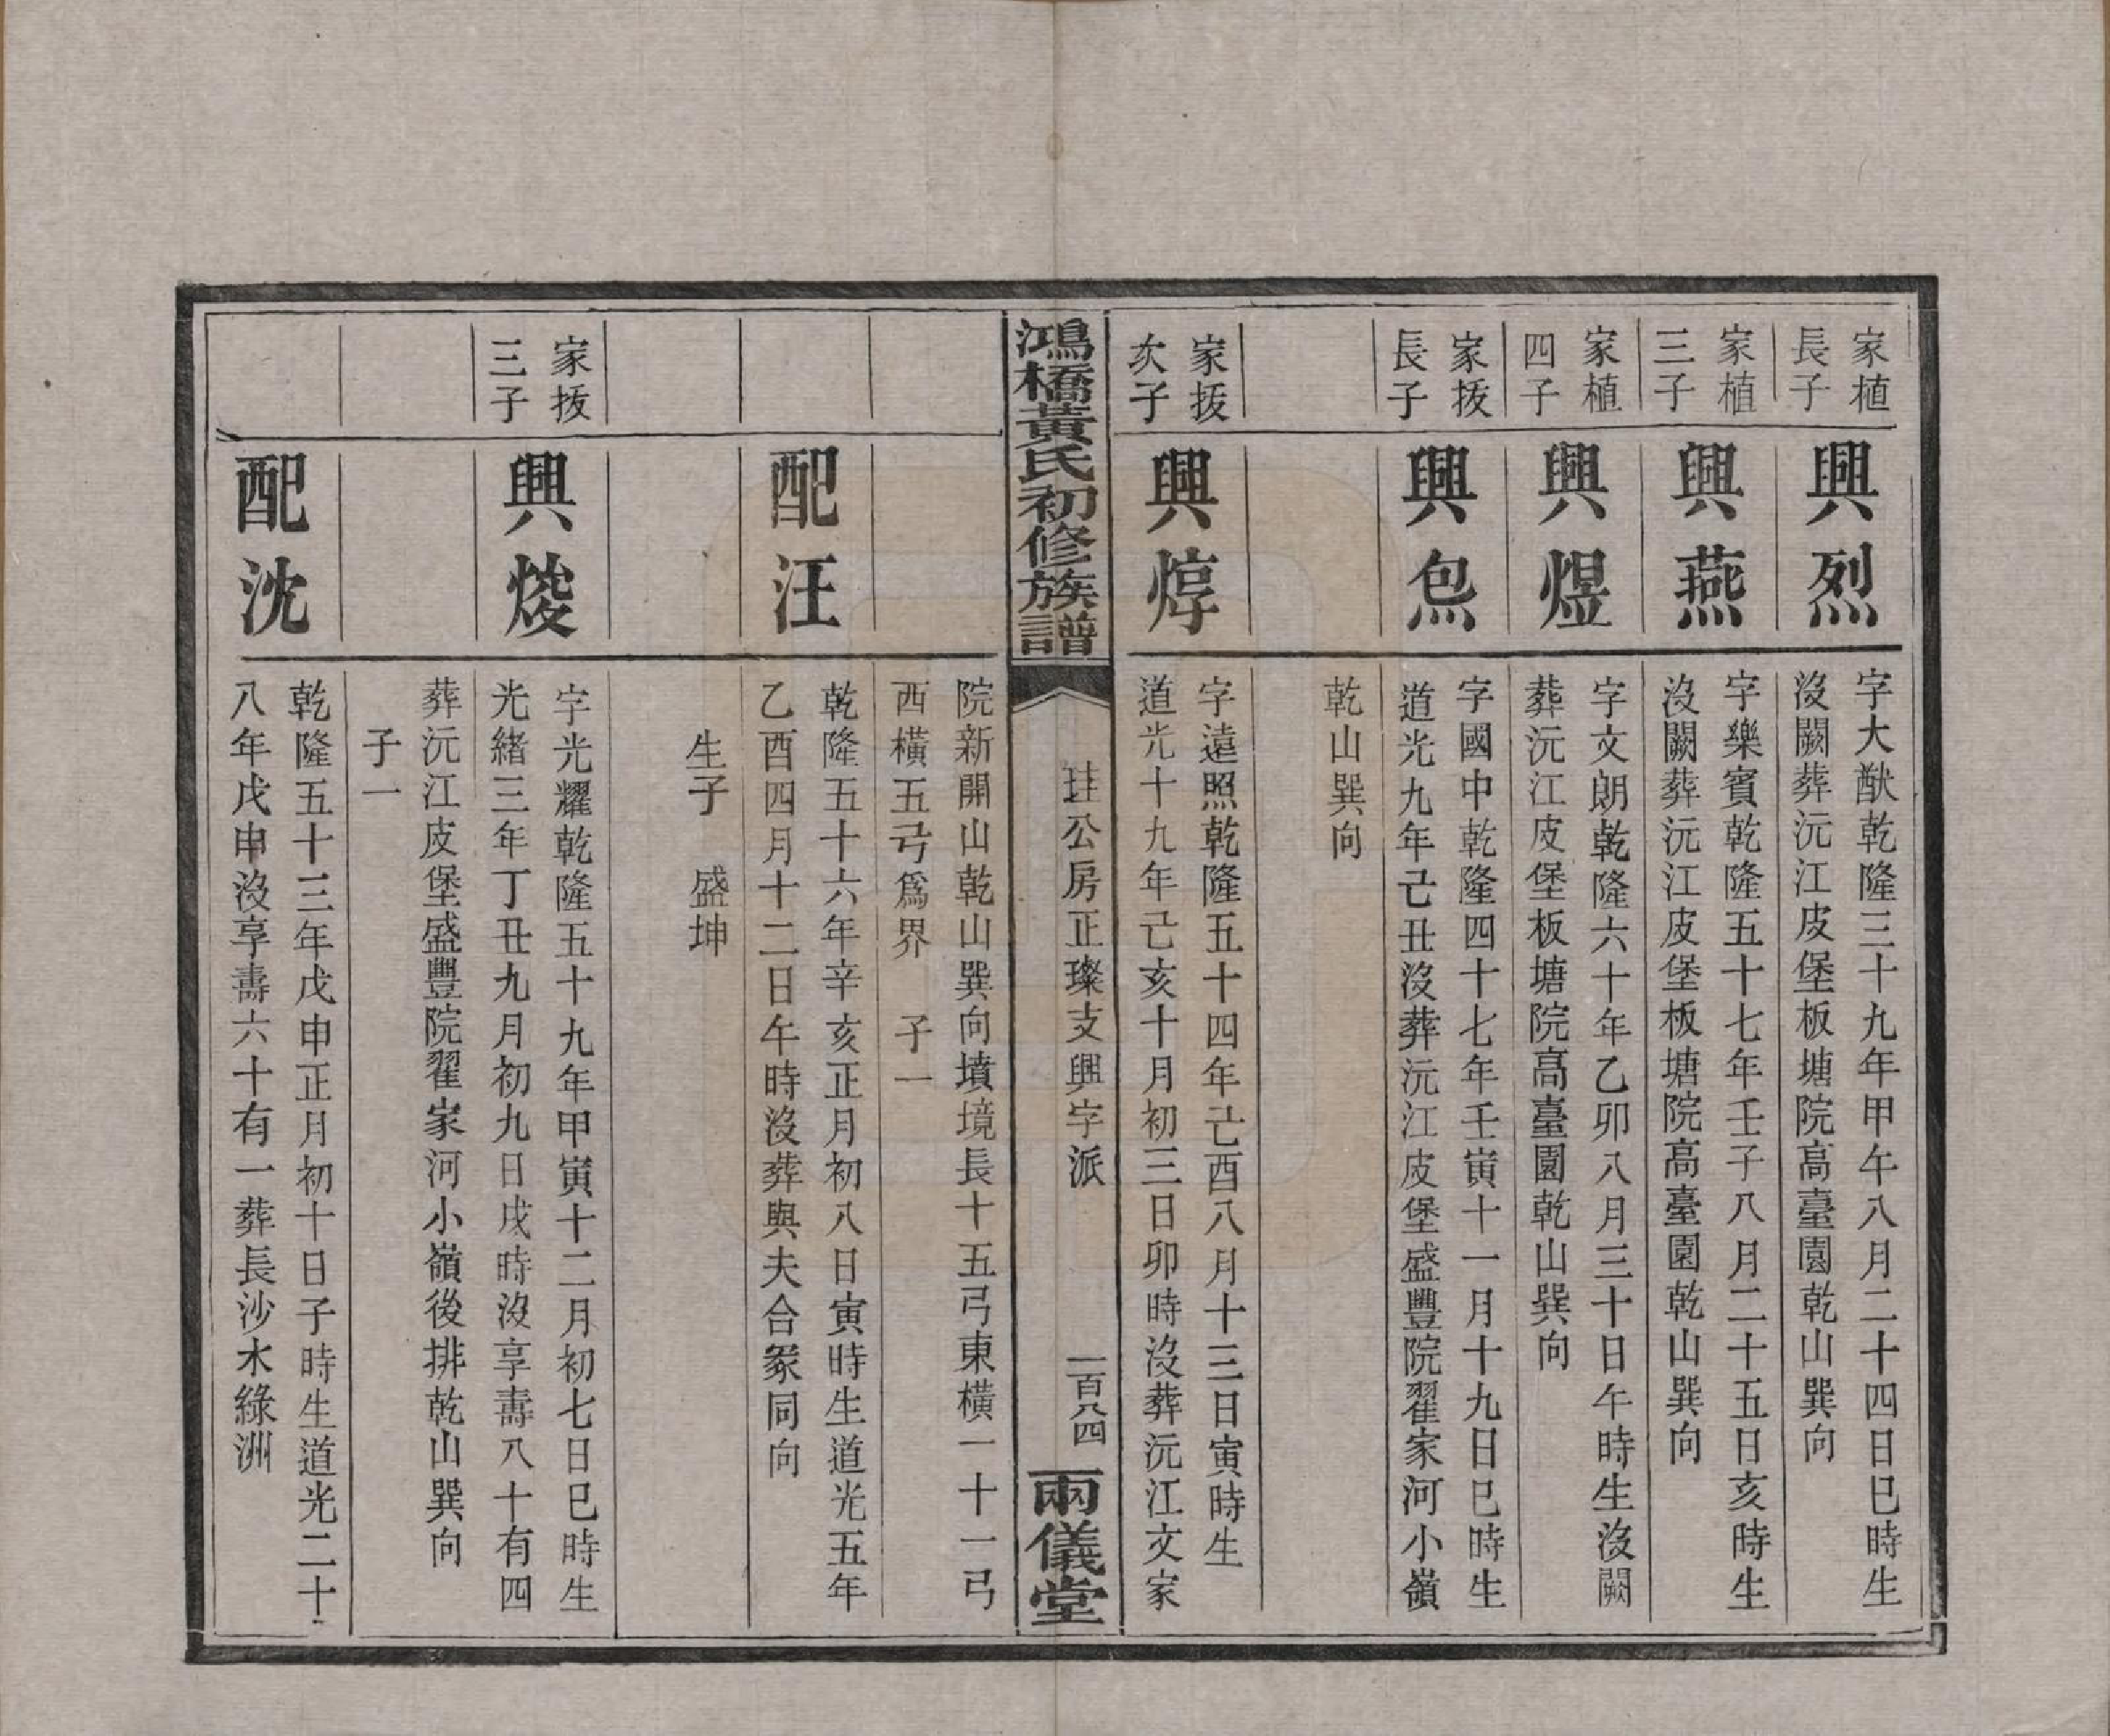 家植
長子
興烈
字大猷乾隆三十九年甲午八月二十四日巳時生
沒闕葬沅江皮堡板塘院高臺園乾山巽向
家植
三子
興燕
字樂賓乾隆五十七年壬子八月二十五日亥時生
沒闕葬沅江皮堡板塘院高臺園乾山巽向
家植
四子
興煜
字文朗乾隆六十年乙卯八月三十日午時生沒闕
葬沅江皮堡板塘院高臺園乾山巽向
家㧞
長子
興炰
字國中乾隆四十七年壬寅十一月十九日巳時生
道光九年己丑沒葬沅江皮堡盛豐院翟家河小嶺
乾山巽向
家㧞
次子
興焞
字遠照乾隆五十四年己酉八月十三日寅時生
道光十九年己亥十月初三日卯時沒葬沅江文家
鴻橋黃氏初修族譜
珪公房正璨支興字派
一百八四
兩儀堂
院新開山乾山巽向墳境長十五弓東橫一十一弓
西橫五弓爲界 子一
配汪
乾隆五十六年辛亥正月初八日寅時生道光五年
乙酉四月十二日午時沒葬與夫合冢同向
生子 盛坤
家㧞
三子
興焌
字光耀乾隆五十九年甲寅十二月初七日巳時生
光緒三年丁丑九月初九日戌時沒享壽八十有四
葬沅江皮堡盛豐院翟家河小嶺後排乾山巽向
子一
配沈
乾隆五十三年戊申正月初十日子時生道光二十
八年戊申沒享壽六十有一葬長沙水綠洲